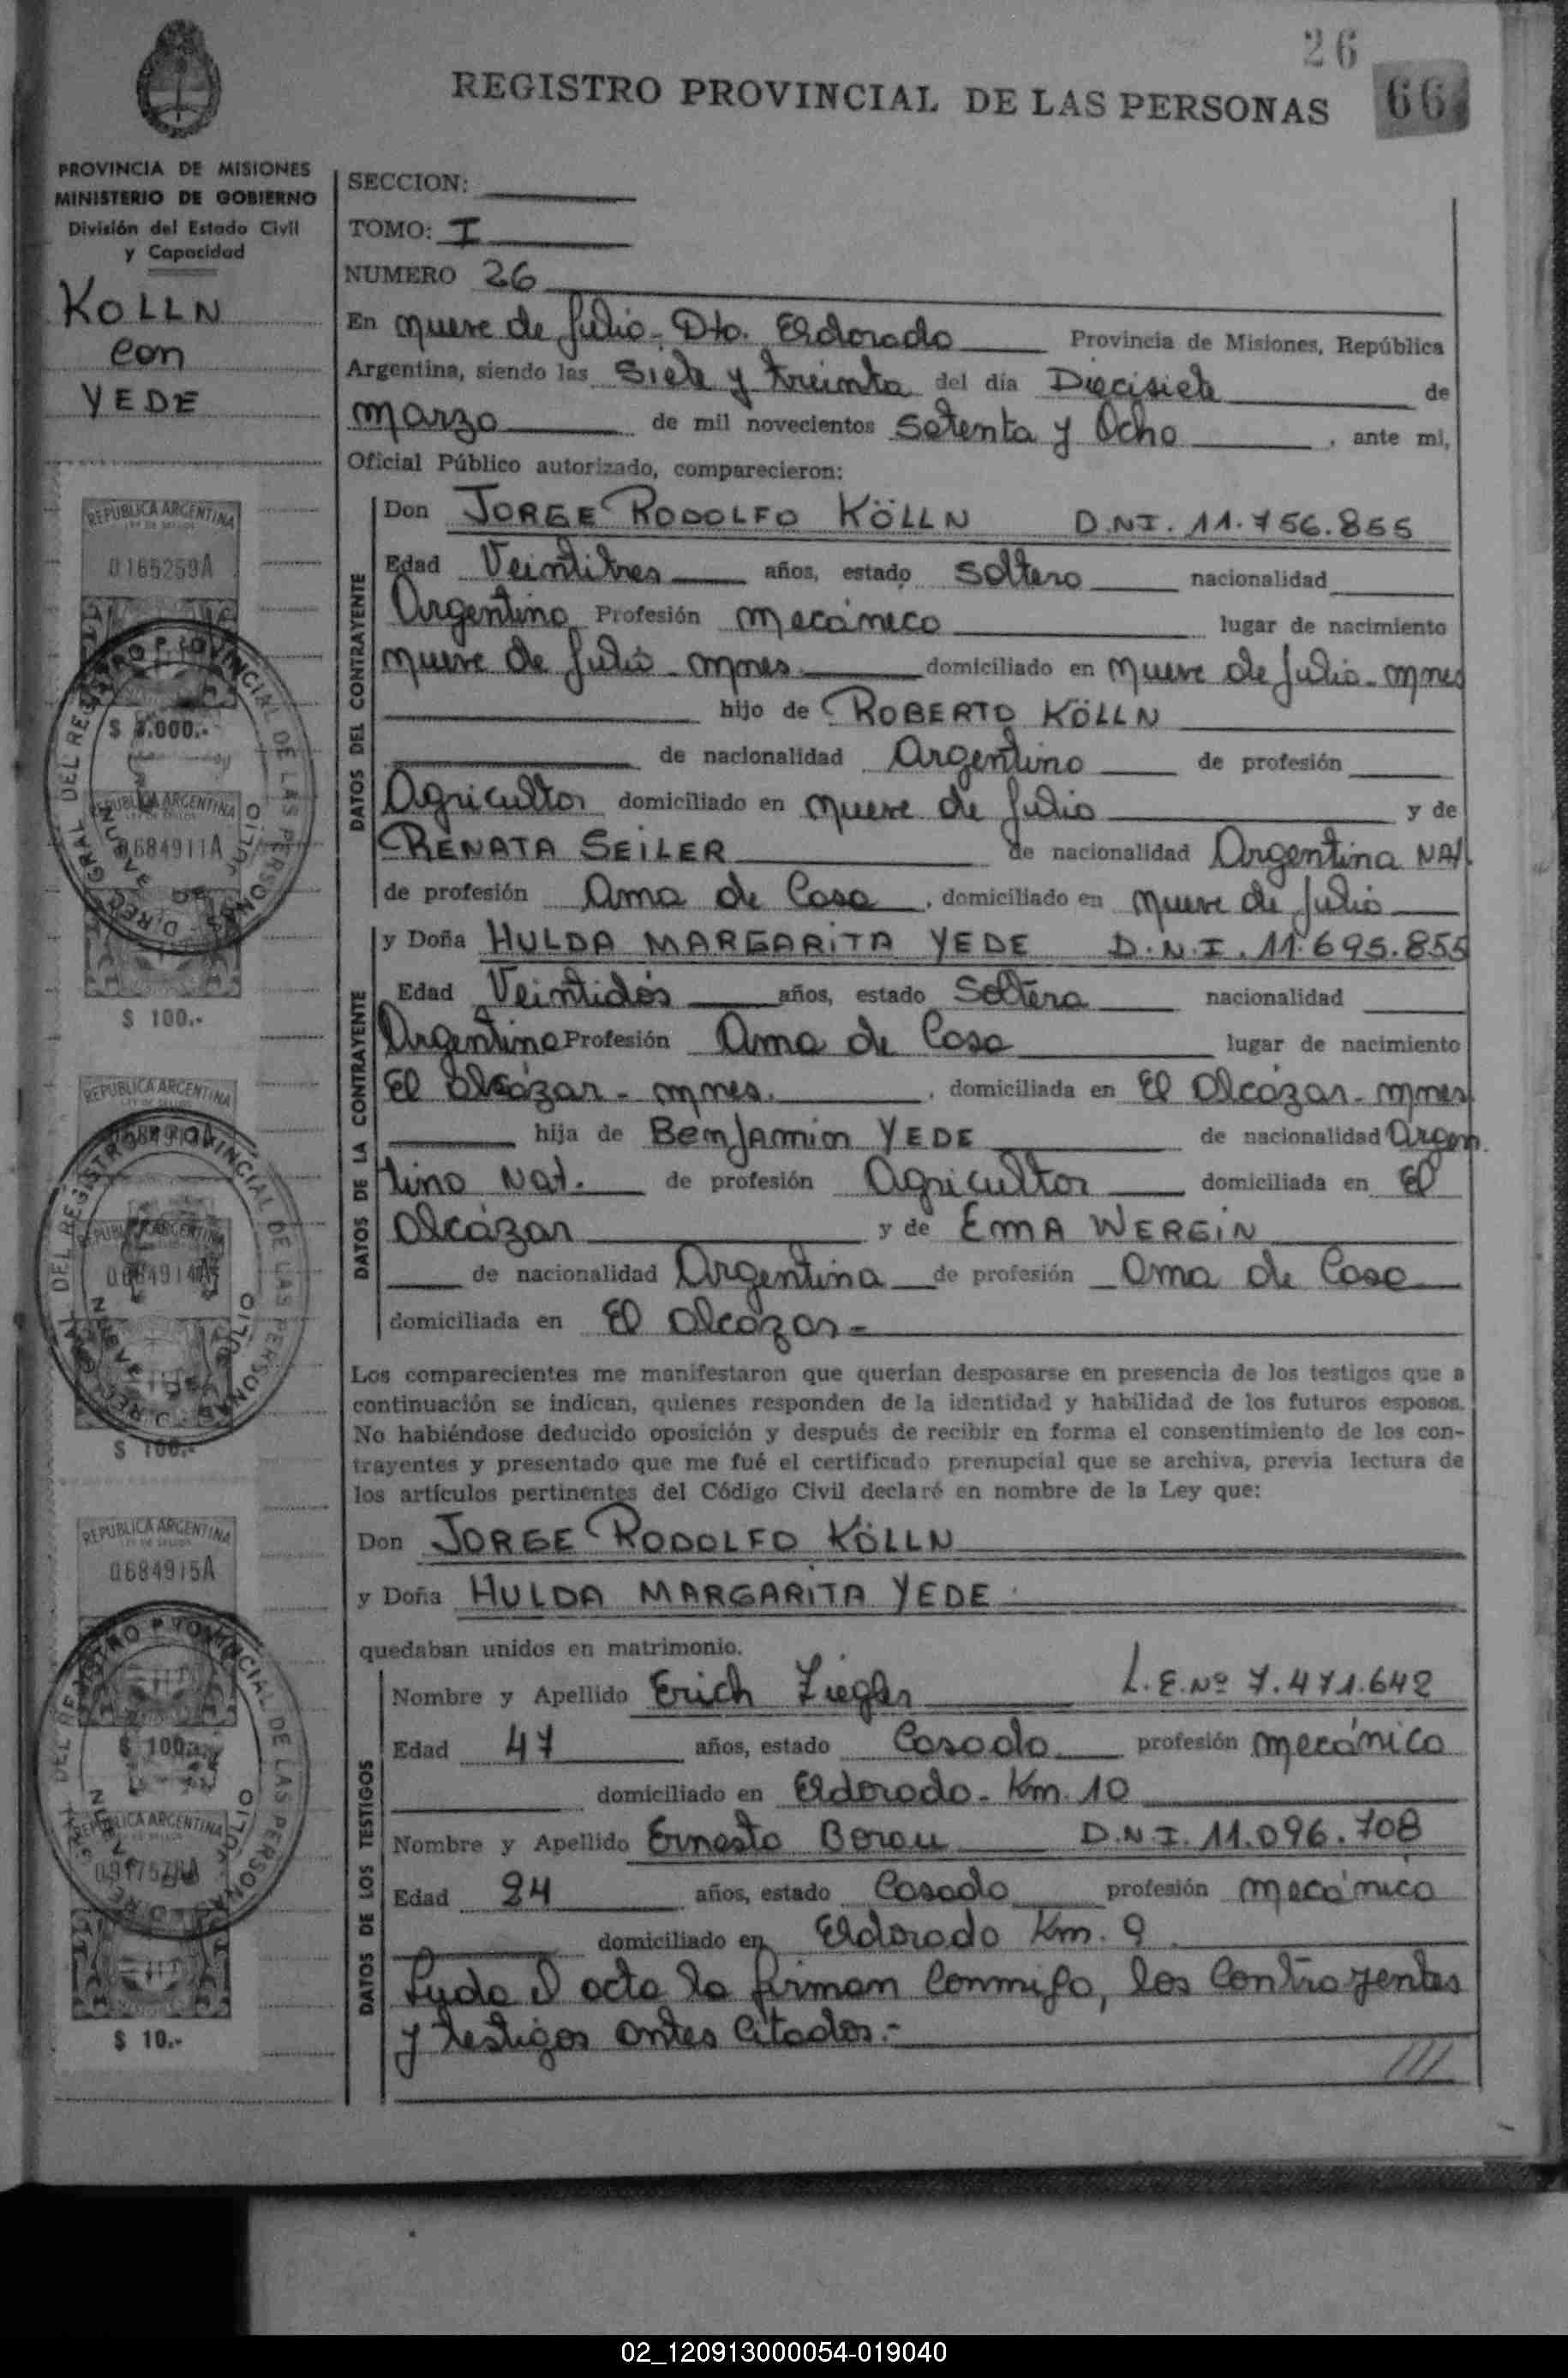 26
REGISTRO PROVINCIAL DE LAS PERSONAS
66
PROVINCIA DE MISIONES
MINISTERIO DE GOBIERNO
División del Estado Civil
y Capacidad
KOLLN
con
YEDE
SECCION:
TOMO: I
NUMERO 26
En nueve de Julio - Dto. Eldorado Provincia de Misiones, República
Argentina, siendo las Siete y treinta del día Diecisiete de
marzo de mil novecientos setenta y Ocho, ante mi,
Oficial Público autorizado, comparecieron:
DATOS DEL CONTRAYENTE
Don JORGE RODOLFO KÖLLN D.N.I. 11.756.855
Edad Veintitres años, estado soltero nacionalidad
Argentino Profesión mecánico lugar de nacimiento
nueve de Julio - mnes. domiciliado en nueve de Julio - mnes
hijo de ROBERTO KÖLLN
de nacionalidad Argentino de profesión
Agricultor domiciliado en nueve de Julio y de
RENATA SEILER de nacionalidad Argentina NAT.
de profesión Ama de Casa, domiciliado en nueve de Julio
DATOS DE LA CONTRAYENTE
y Doña HULDA MARGARITA YEDE D.N.I. 11.695.855
Edad Veintidós años, estado Soltera nacionalidad
Argentina Profesión Ama de Casa lugar de nacimiento
El Alcázar - mnes., domiciliada en El Alcázar - mnes
hija de Benjamin YEDE de nacionalidad Argen
tino Nat. de profesión Agricultor domiciliada en El
Alcázar y de EMA WERGIN
de nacionalidad Argentina de profesión Ama de Casa
domiciliada en El Alcázar -
Los comparecientes me manifestaron que querían desposarse en presencia de los testigos que a
continuación se indican, quienes responden de la identidad y habilidad de los futuros esposos.
No habiéndose deducido oposición y después de recibir en forma el consentimiento de los con-
trayentes y presentado que me fué el certificado prenupcial que se archiva, previa lectura de
los artículos pertinentes del Código Civil declaré en nombre de la Ley que:
Don JORGE RODOLFO KÖLLN
y Doña HULDA MARGARITA YEDE
quedaban unidos en matrimonio.
DATOS DE LOS TESTIGOS
Nombre y Apellido Erich Ziegler L.E.Nº 7.471.642
Edad 47 años, estado Casado profesión mecánico
domiciliado en Eldorado - Km. 10
Nombre y Apellido Ernesto D.N.I. 11.096.708
Edad 24 años, estado Casado profesión mecánico
domiciliado en Eldorado Km. 9
Leyda el acta la firman Conmigo, los Contrayentes
y testigos antes Citados.-
///
REPUBLICA ARGENTINA
0165259A
$ 5.000.-
REPUBLICA ARGENTINA
0684911A
$ 100.-
REPUBLICA ARGENTINA
REPUBLICA ARGENTINA
0684914A
$ 100.-
REPUBLICA ARGENTINA
0684915A
$ 100.-
REPUBLICA ARGENTINA
$ 10.-
DIREC. GRAL. DEL REGISTRO PROVINCIAL DE LAS PERSONAS
NUEVE DE JULIO
02_120913000054-019040